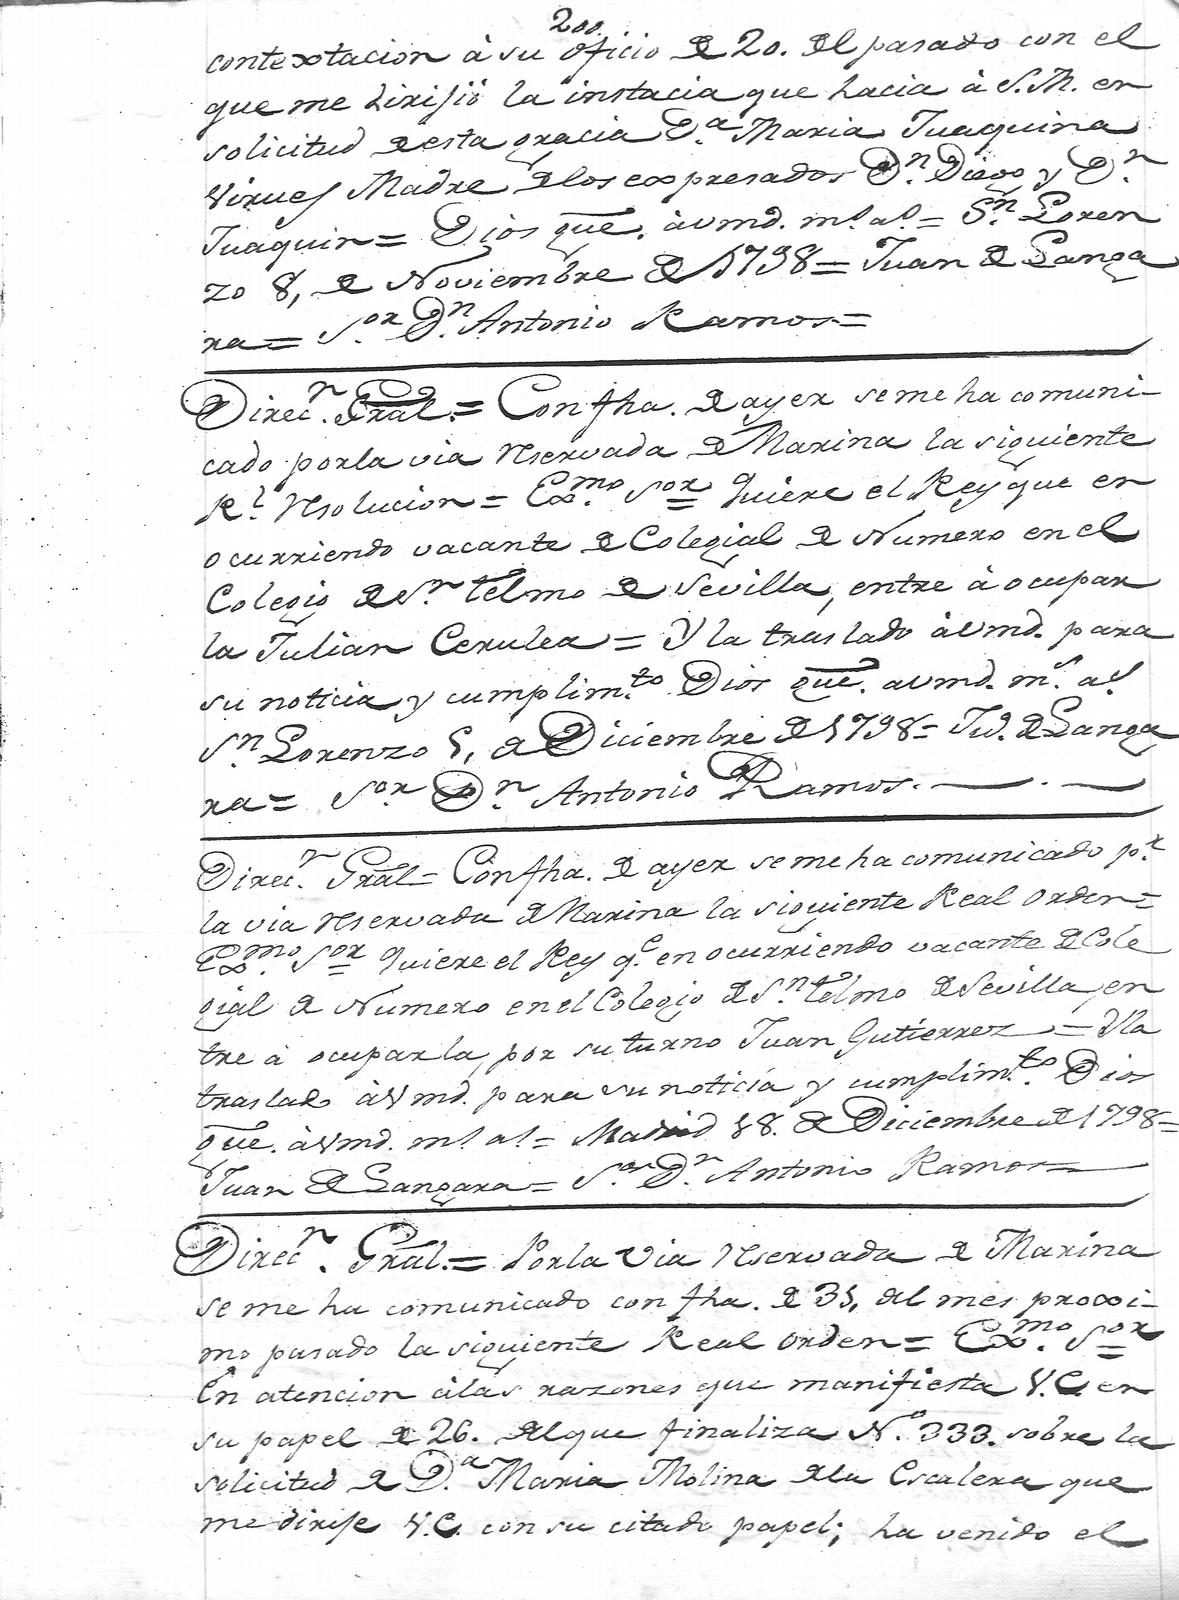 200.
contextacion à su oficio de 20. del pasado con el
que me dirijió la instacia que hacia à S.M. en
solicitud de esta gracia D.ª Maria Juaquina
Virues Madre de los expresados D.n Diego y D.n
Juaquin = Dios gue. à vmd. m.s a.s = S.n Loren
zo 8, de Noviembre de 1798 = Juan de Langa
ra = S.or D.n Antonio Ramos =
Direc.n Gral. = Con fha. de ayer se me ha comuni-
cado por la via reservada de Marina la siguiente
R.l resolucion = Exmo. Sor Quiere el Rey que en
ocurriendo vacante de Colegial de Numero en el
Colegio de S.n Telmo de Sevilla, entre à ocupar
la Julian Cerulea = Y la traslado à vmd. para
su noticia y cumplim.to Dios gue. a vmd. m.s a.s
S.n Lorenzo 5, de Diciembre de 1798 = Ju.º de Langa
ra = S.or D.n Antonio Ramos.
Direc.n Gral = Con fha. de ayer se me ha comunicado p.r
la via reservada de Marina la siguiente Real orden =
Exmo. Sor Quiere el Rey q.e en ocurriendo vacante de Cole
gial de Numero en el Colegio de S.n Telmo de Sevilla, en
tre à ocuparla, por su turno Juan Gutierrez = Yla
traslado à Vmd. para su noticia y cumplim.to Dios
gue. à Vmd. m.s a.s = Madrid 18. de Diciembre de 1798 =
Juan de Langara = S.or D.n Antonio Ramos =
Direc.n Gral. = Por la via reservada de Marina
se me ha comunicado con fha. de 31, del mes proxi-
mo pasado la siguiente Real orden = Exmo. Sor
En atencion à las razones que manifiesta V.E. en
su papel de 26. del que finaliza N.º 333. sobre la
solicitud de D.ª Maria Molina de la Escalera que
me dirije V.E. con su citado papel; ha venido el